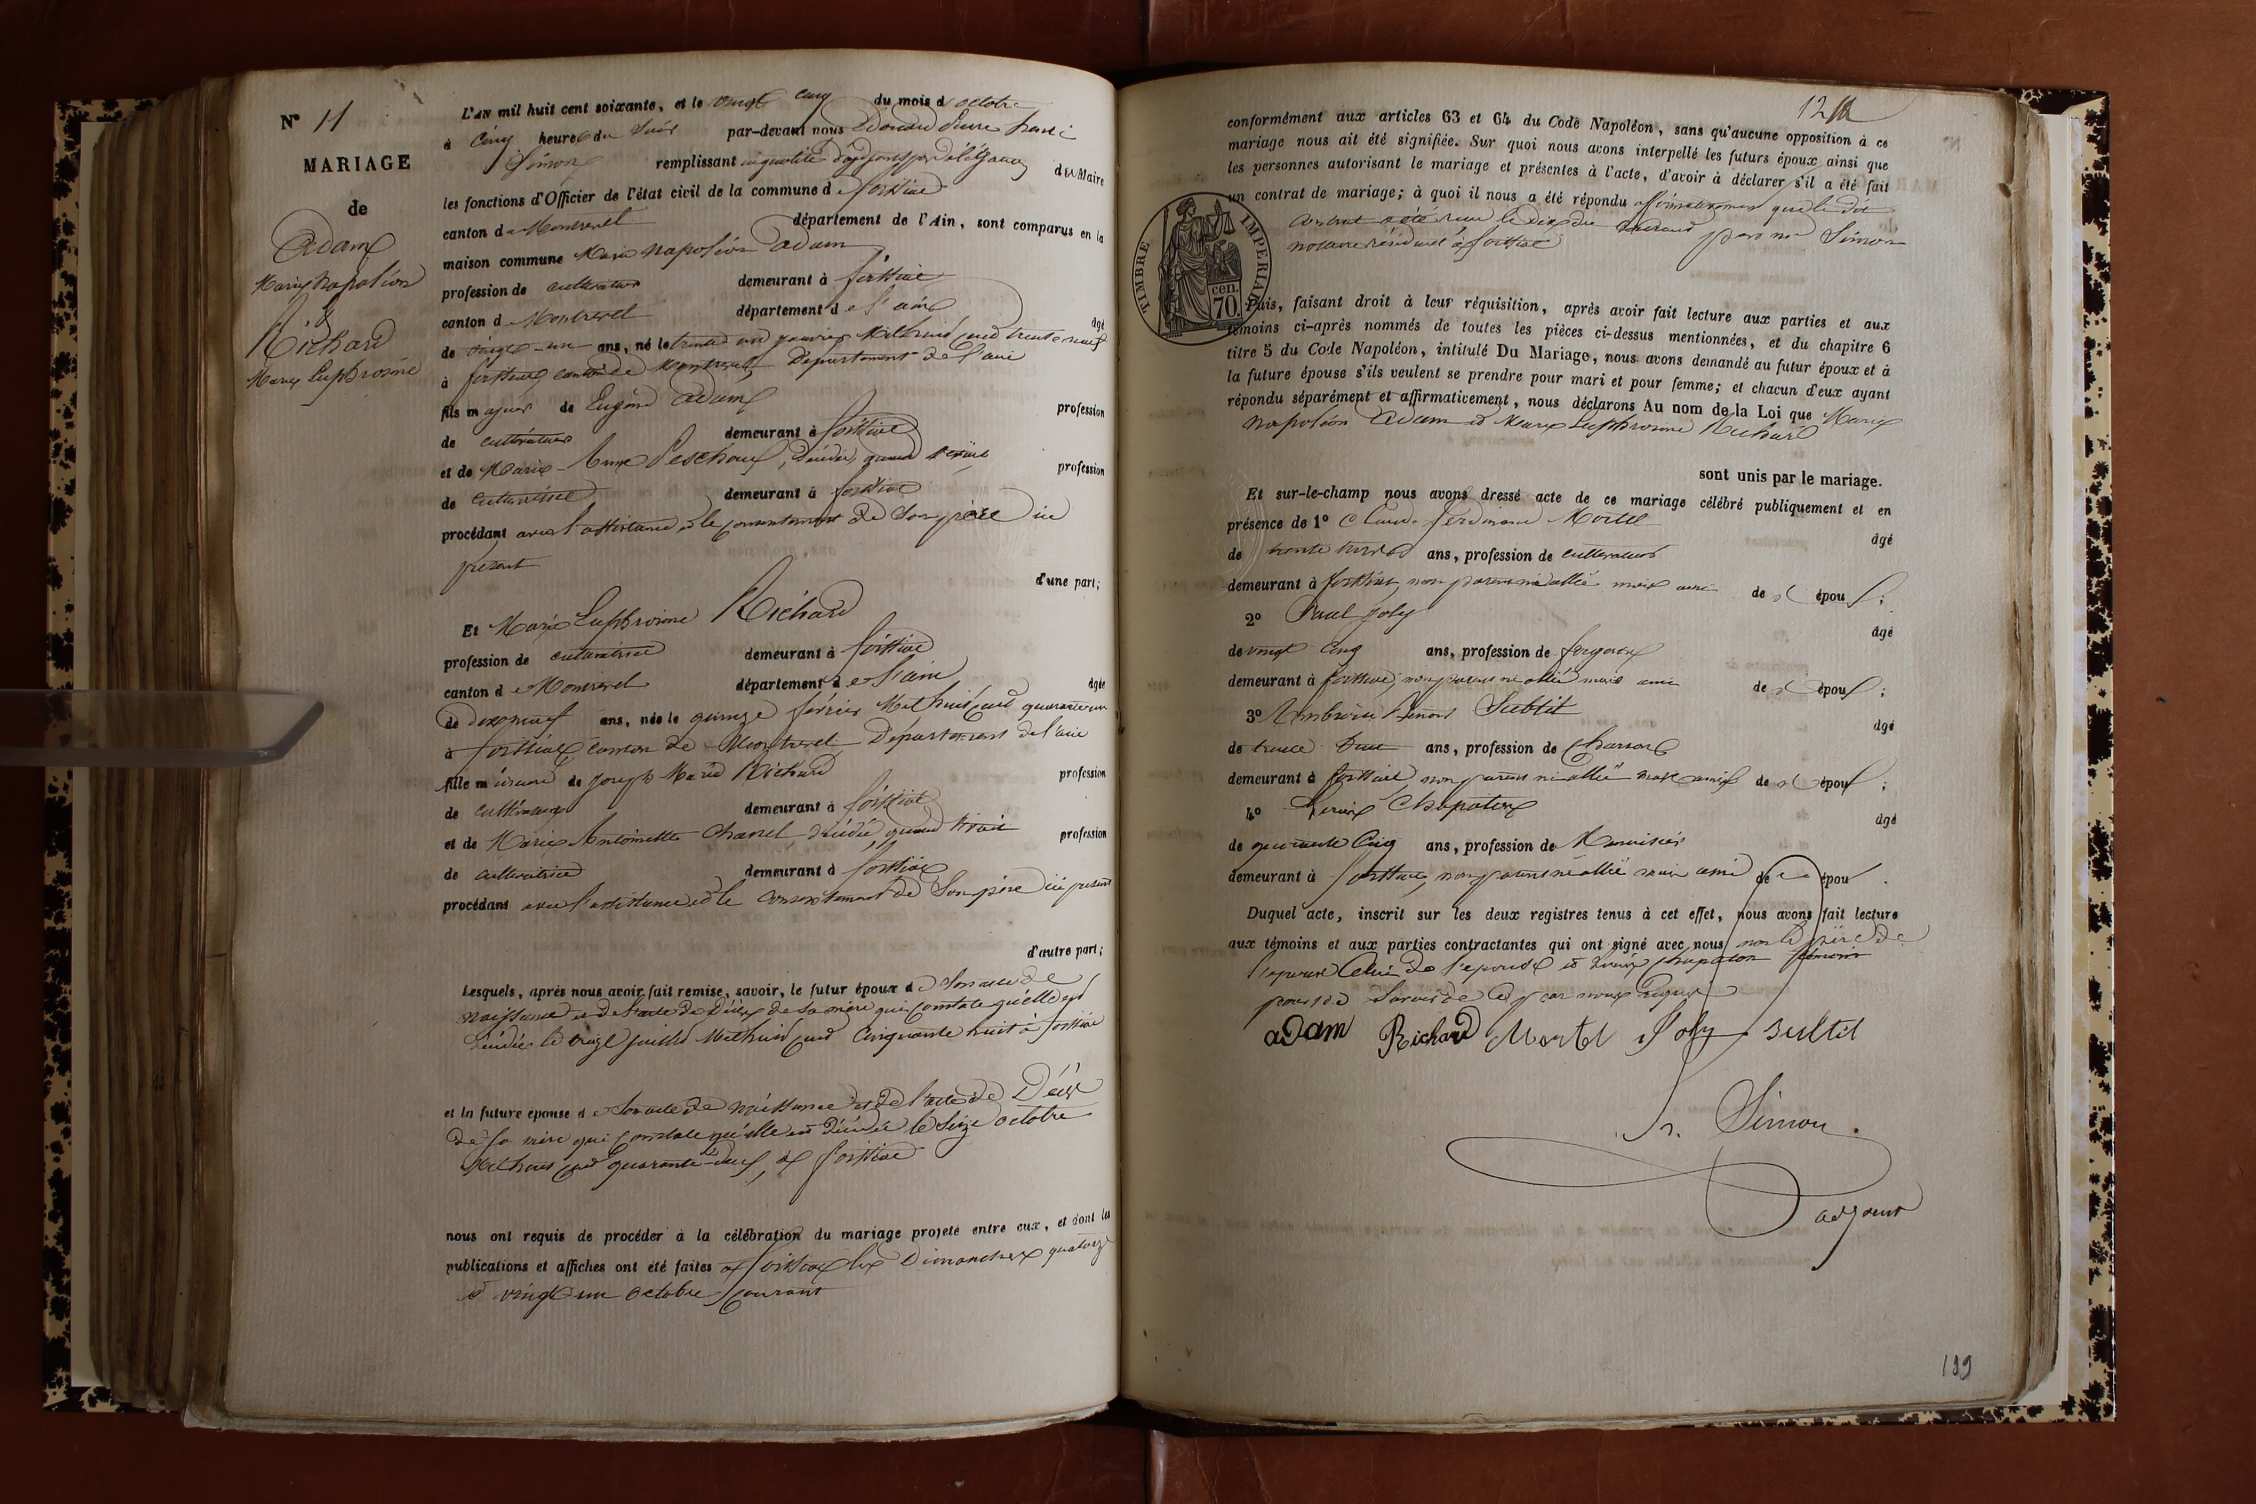 N° 11
MARIAGE
de
Adam
Marie Napoléon
&
Richard
Marie Euphrosine
L'AN mil huit cent soixante, et le vingt cinq du mois d'octobre
à cinq heures du soir par-devant nous Edouard Pierre
Simon remplissant en qualité d'adjoint par délégation du Maire
les fonctions d'Officier de l'état civil de la commune de foissiat
canton de Montrevel département de l'Ain, sont comparus en la
maison commune Marie Napoléon Adam
profession de cultivateur demeurant à foissiat
canton de Montrevel département de l'ain âgé
de vingt-un ans, né le trente un janvier Mil huit cent trente neuf
à foissiat canton de Montrevel Département de l'ain
fils majeur de Eugène Adam profession
de cultivateur demeurant à foissiat
et de Marie-Anne Péschoux, décédée, quand vivait profession
de cultivatrice demeurant à foissiat
procédant avec l'assistance et le consentement de son père ici
présent
d'une part;
Et Marie Euphrosine Richard
profession de cultivatrice demeurant à foissiat
canton de Montrevel département de l'ain âgée
de dixneuf ans, née le quinze février Mil huit cent quarante un
à foissiat canton de Montrevel Département de l'ain
fille mineure de joseph Marie Richard profession
de cultivateur demeurant à foissiat
et de Marie Antoinette Chanel décédée quand vivait profession
de cultivatrice demeurant à foissiat
procédant avec l'assistance et le consentement de son père ici présent
d'autre part;
Lesquels, après nous avoir fait remise, savoir, le futur époux de son acte de
naissance et de l'acte de Décès de sa mère qui constate qu'elle est
décédée le treize juillet Mil huit cent cinquante huit à foissiat
et la future épouse de son acte de naissance et de l'acte de Décès
de sa mère qui constate qu'elle est décédée le seize octobre
Mil huit cent quarante-deux, à foissiat
nous ont requis de procéder à la célébration du mariage projeté entre eux, et dont les
publications et affiches ont été faites à foissiat les Dimanches quatorze
et vingt un octobre courant
12
conformément aux articles 63 et 64 du Code Napoléon, sans qu'aucune opposition à ce
mariage nous ait été signifiée. Sur quoi nous avons interpellé les futurs époux ainsi que
les personnes autorisant le mariage et présentes à l'acte, d'avoir à déclarer s'il a été fait
un contrat de mariage; à quoi il nous a été répondu affirmativement que le dit
contrat a été reçu le dix du courant par me Simon
notaire résidant à foissiat
TIMBRE IMPERIAL
cen.
70.
Puis, faisant droit à leur réquisition, après avoir fait lecture aux parties et aux
témoins ci-après nommés de toutes les pièces ci-dessus mentionnées, et du chapitre 6
titre 5 du Code Napoléon, intitulé Du Mariage, nous avons demandé au futur époux et à
la future épouse s'ils veulent se prendre pour mari et pour femme; et chacun d'eux ayant
répondu séparément et affirmativement, nous déclarons Au nom de la Loi que Marie
Napoléon Adam et Marie Euphrosine Richard
sont unis par le mariage.
Et sur-le-champ nous avons dressé acte de ce mariage célébré publiquement et en
présence de 1° Claude ferdinand Mortel âgé
de trente trois ans, profession de cultivateur
demeurant à foissiat, non parent ni allié mais ami de l'époux;
2° Paul Joly âgé
de vingt cinq ans, profession de forgeron
demeurant à foissiat, non parent ni allié mais ami de l'époux;
3° Ambroise Subtil âgé
de trente deux ans, profession de Charron
demeurant à foissiat non parent ni allié mais ami de l'époux;
4° Chapaton âgé
de quarante cinq ans, profession de Menuisier
demeurant à foissiat, non parent ni allié mais ami de l'époux.
Duquel acte, inscrit sur les deux registres tenus à cet effet, nous avons fait lecture
aux témoins et aux parties contractantes qui ont signé avec nous, non le père de
l'époux celui de l'épouse et Chapaton témoin
pour ne savoir de ce par nous requis
Adam Richard Mortel Joly Subtil
Simon
adjoint
199